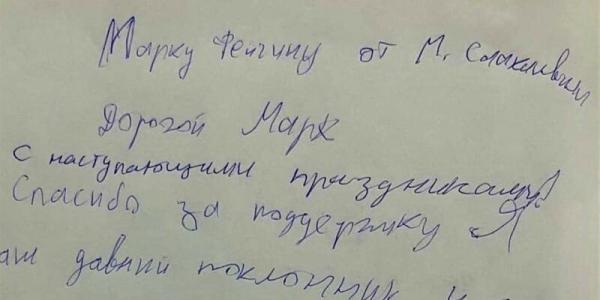 Марку Фейгину от М.
Дорогой Марк
с наступающими праздниками!
Спасибо за поддержку Я
давний поклонник